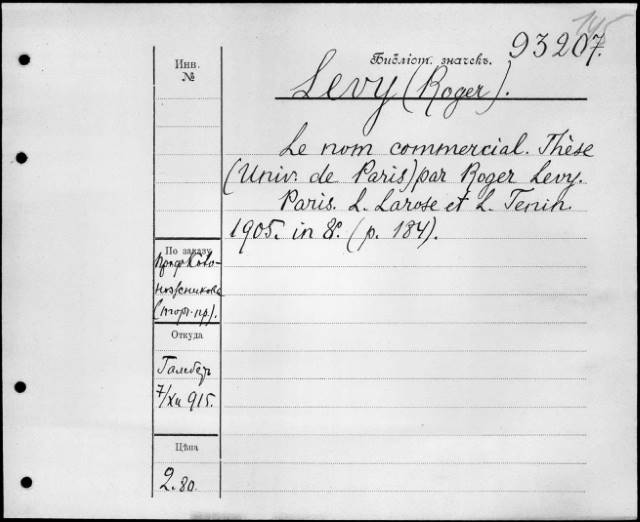 145
Инв.
№
Библіот. значекъ.
93207.
Levy (Roger).
Le nom commercial. Thèse
(Univ. de Paris) par Roger Levy.
Paris. L. Larose et L. Tenin.
1905. in 8º. (p. 184).
По заказу
ножникова
(торг. пр.).
Откуда
7/XII 915.
Цѣна
2.80.